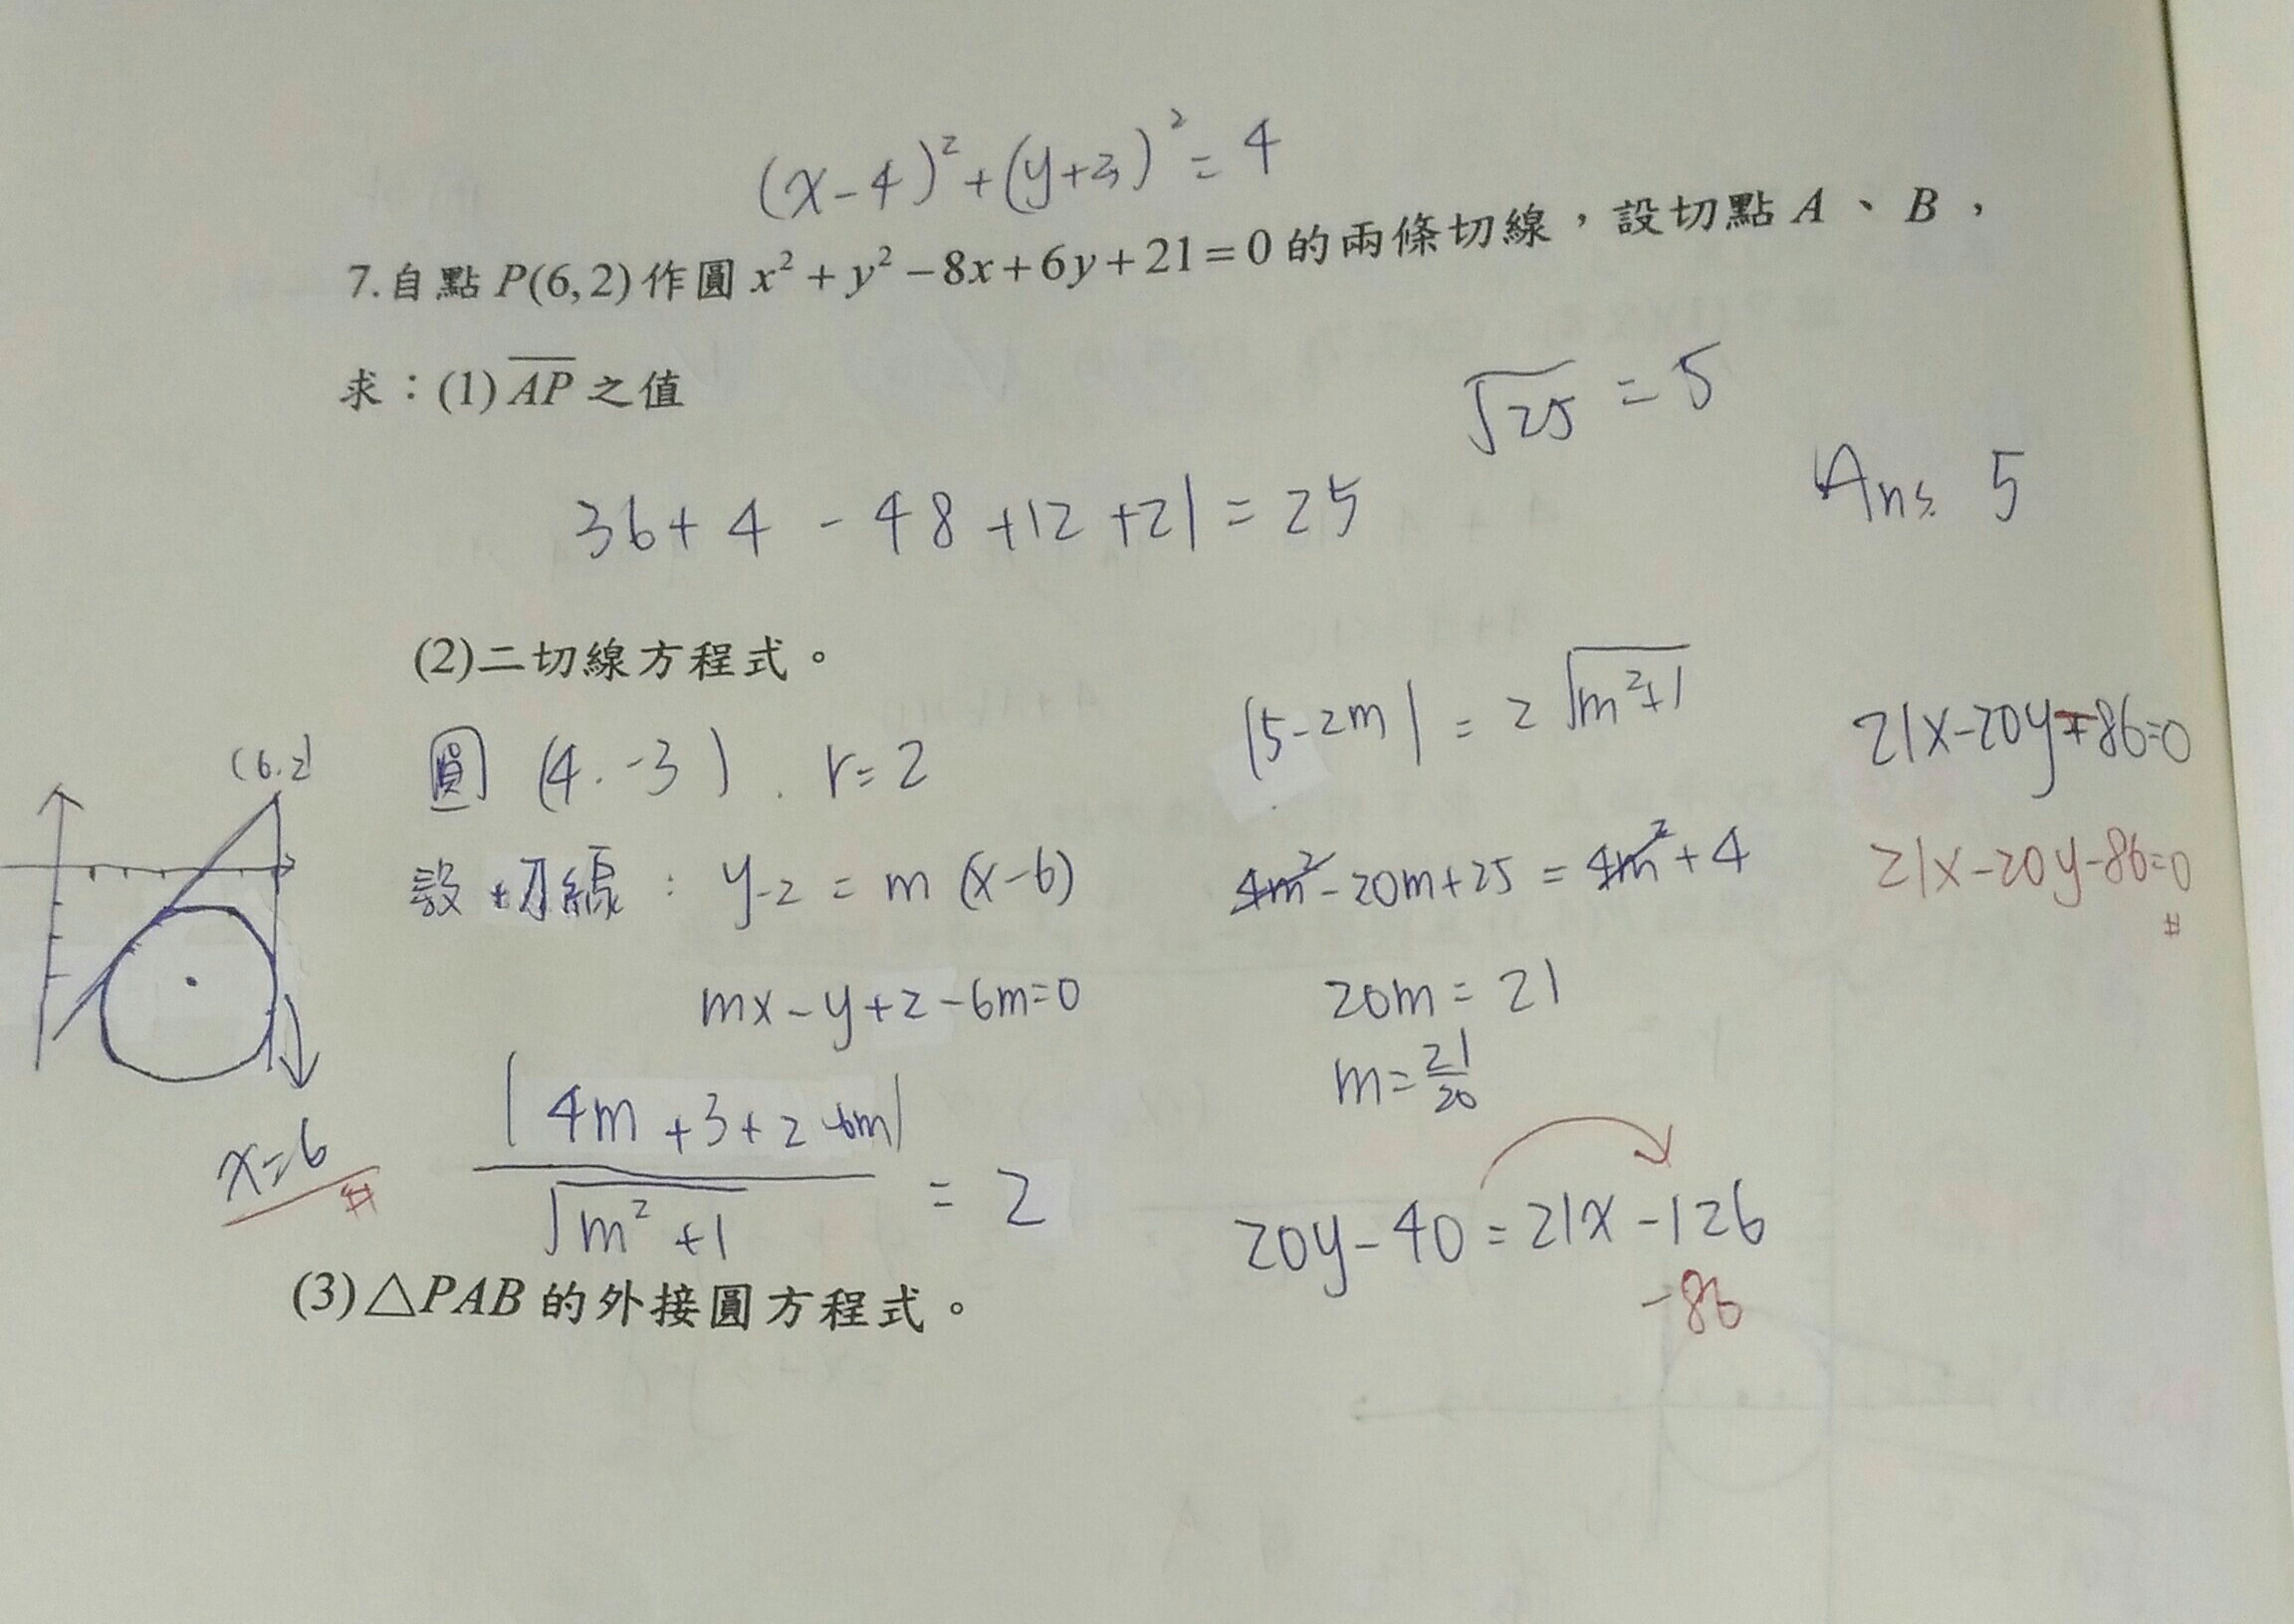 (x-4)²+(y+3)²=4
7.自點 P(6,2) 作圓 x²+y²-8x+6y+21=0 的兩條切線，設切點 A、B，
求：(1) \overline{AP} 之值
√25 = 5
36+4-48+12+21=25
Ans. 5
(2)二切線方程式。
(6.2)
圓 (4.-3). r=2
設切線: y-2=m(x-6)
mx-y+2-6m=0
|4m+3+2-6m|/√(m²+1) = 2
x=6 #
|5-2m| = 2√(m²+1)
4m²-20m+25=4m²+4
20m=21
m=21/20
20y-40=21x-126
-86
21x-20y-86=0
21x-20y-86=0 #
(3)△PAB 的外接圓方程式。